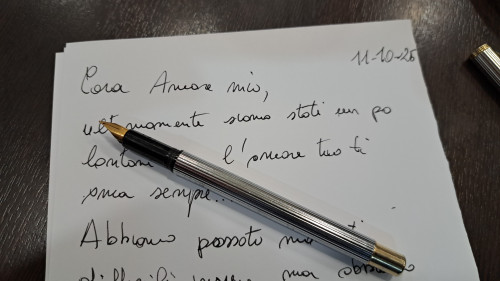 11-10-25
Cara Amore mio,
ultimamente siamo stati un po
lontani l'amore tuo ti
ama sempre...
Abbiamo passato
difficili ma